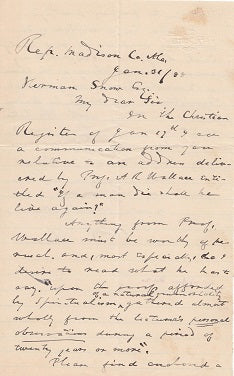 Rep. Madison Co. Me.
Jan. 31/88
Herman Snow Esq.
My Dear Sir
In the Christian
Register of Jan 19th I saw
a communication from you
relative to an address deliv-
ered by Prof. A R Wallace enti-
tled "If a man die shall he
live again?"
Anything from Prof.
Wallace must be worthy of pe-
rusal, and, most especially, do I
desire to read what he has to
say "upon the proofs afforded
of a natural immortality
by Spiritualism, gathered almost
wholly from the lecturer's personal
observations during a period of
twenty years or more".
Please find enclosed a